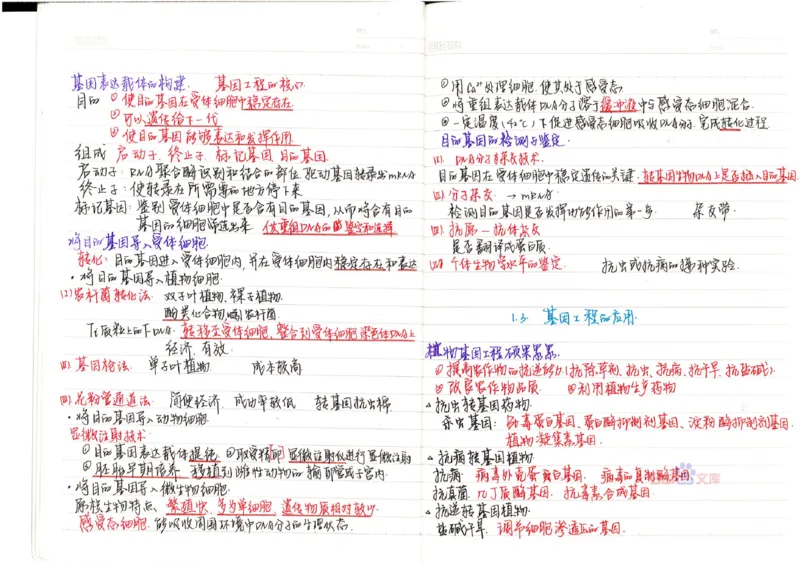 基因表达载体的构建. 基因工程的核心.
目的 ① 使目的基因在受体细胞中稳定存在.
② 可以遗传给下一代
③ 使目的基因能够表达和发挥作用
组成 启动子. 终止子. 标记基因. 目的基因.
启动子: RNA聚合酶识别和结合的部位, 驱动基因转录出mRNA
终止子: 使转录在所需要的地方停下来
标记基因: 鉴别受体细胞中是否含有目的基因, 从而将含有目的
基因的细胞筛选出来. 供重组DNA的鉴定和选择
将目的基因导入受体细胞.
转化: 目的基因进入受体细胞内, 并在受体细胞内稳定存在和表达
· 将目的基因导入植物细胞.
农杆菌转化法. 双子叶植物、裸子植物.
酚类化合物 农杆菌.
Ti质粒上的T-DNA. 转移至受体细胞, 整合到受体细胞染色体DNA上
经济. 有效.
基因枪法. 单子叶植物. 成本较高
花粉管通道法. 简便经济. 成功率较低 转基因抗虫棉.
· 将目的基因导入动物细胞
显微注射技术.
① 目的基因表达载体提纯. ② 取受精卵 显微注射仪进行显微注射
③ 胚胎早期培养 移植到雌性动物的输卵管或子宫内.
· 将目的基因导入微生物细胞.
原核生物特点. 繁殖快、多为单细胞、遗传物质相对较少.
感受态细胞. 能吸收周围环境中DNA分子的生理状态.
① 用Ca²⁺处理细胞. 使其处于感受态
② 将重组表达载体DNA分子溶于缓冲液中与感受态细胞混合.
③ 一定温度(42℃)下促进感受态细胞吸收DNA分子. 完成转化过程.
目的基因的检测与鉴定.
DNA分子杂交技术.
目的基因在受体细胞中稳定遗传的关键. 转基因生物DNA上是否插入目的基因.
分子杂交. → mRNA
检测目的基因是否发挥功能作用的第一步. 杂交带.
抗原—抗体杂交
是否翻译成蛋白质.
个体生物学水平的鉴定. 抗虫或抗病的接种实验.
1.3. 基因工程的应用.
植物基因工程硕果累累.
① 提高农作物的抗逆能力(抗除草剂、抗虫、抗病、抗干旱、抗盐碱).
② 改良农作物品质. ③ 利用植物生产药物
△ 抗虫转基因药物.
杀虫基因: 毒蛋白基因、蛋白酶抑制剂基因、淀粉酶抑制剂基因.
植物凝集素基因.
△ 抗病转基因植物.
抗病 病毒外壳蛋白基因. 病毒的复制酶基因.
抗真菌 几丁质酶基因. 抗毒素合成基因
△ 抗逆转基因植物.
盐碱干旱. 调节细胞渗透压的基因.
文库